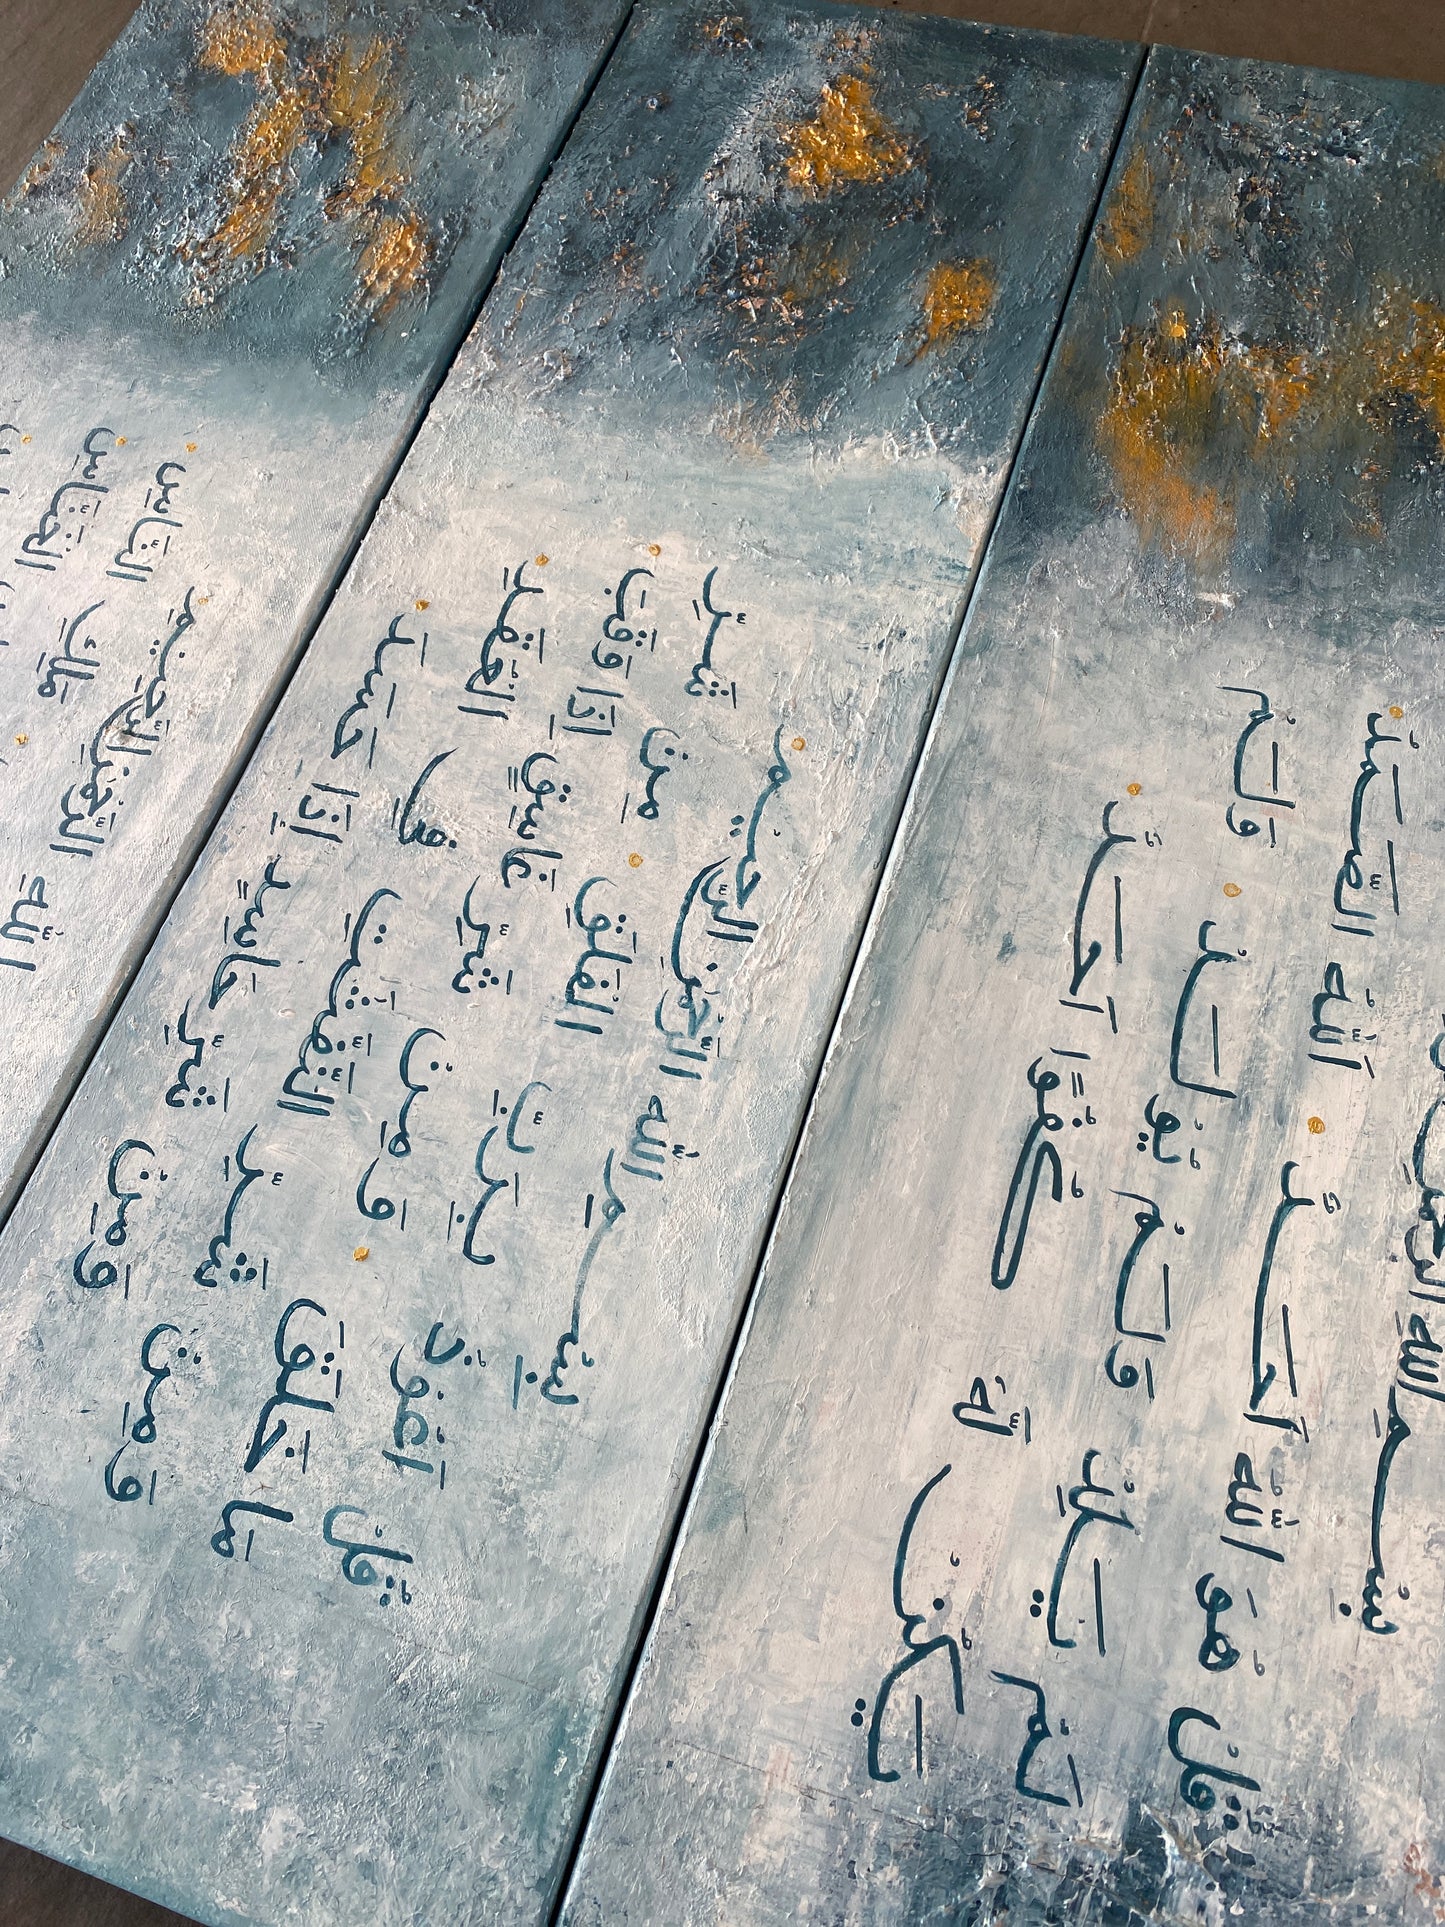 بِسْمِ اللّٰهِ الرَّحْمٰنِ
قُلْ هُوَ اللّٰهُ اَحَدٌ اَللّٰهُ الصَّمَدُ
لَمْ يَلِدْ وَلَمْ يُوْلَدْ وَلَمْ
يَكُنْ لَّهٗ كُفُوًا اَحَدٌ
بِسْمِ اللّٰهِ الرَّحْمٰنِ الرَّحِيْمِ
قُلْ اَعُوْذُ بِرَبِّ الْفَلَقِ مِنْ شَرِّ
مَا خَلَقَ وَ مِنْ شَرِّ غَاسِقٍ اِذَا وَقَبَ
وَ مِنْ شَرِّ النَّفّٰثٰتِ فِي الْعُقَدِ
وَ مِنْ شَرِّ حَاسِدٍ اِذَا حَسَدَ
اللّٰهِ الرَّحْمٰنِ الرَّحِيْمِ
مَلِكِ النَّاسِ
الْخَنَّاسِ